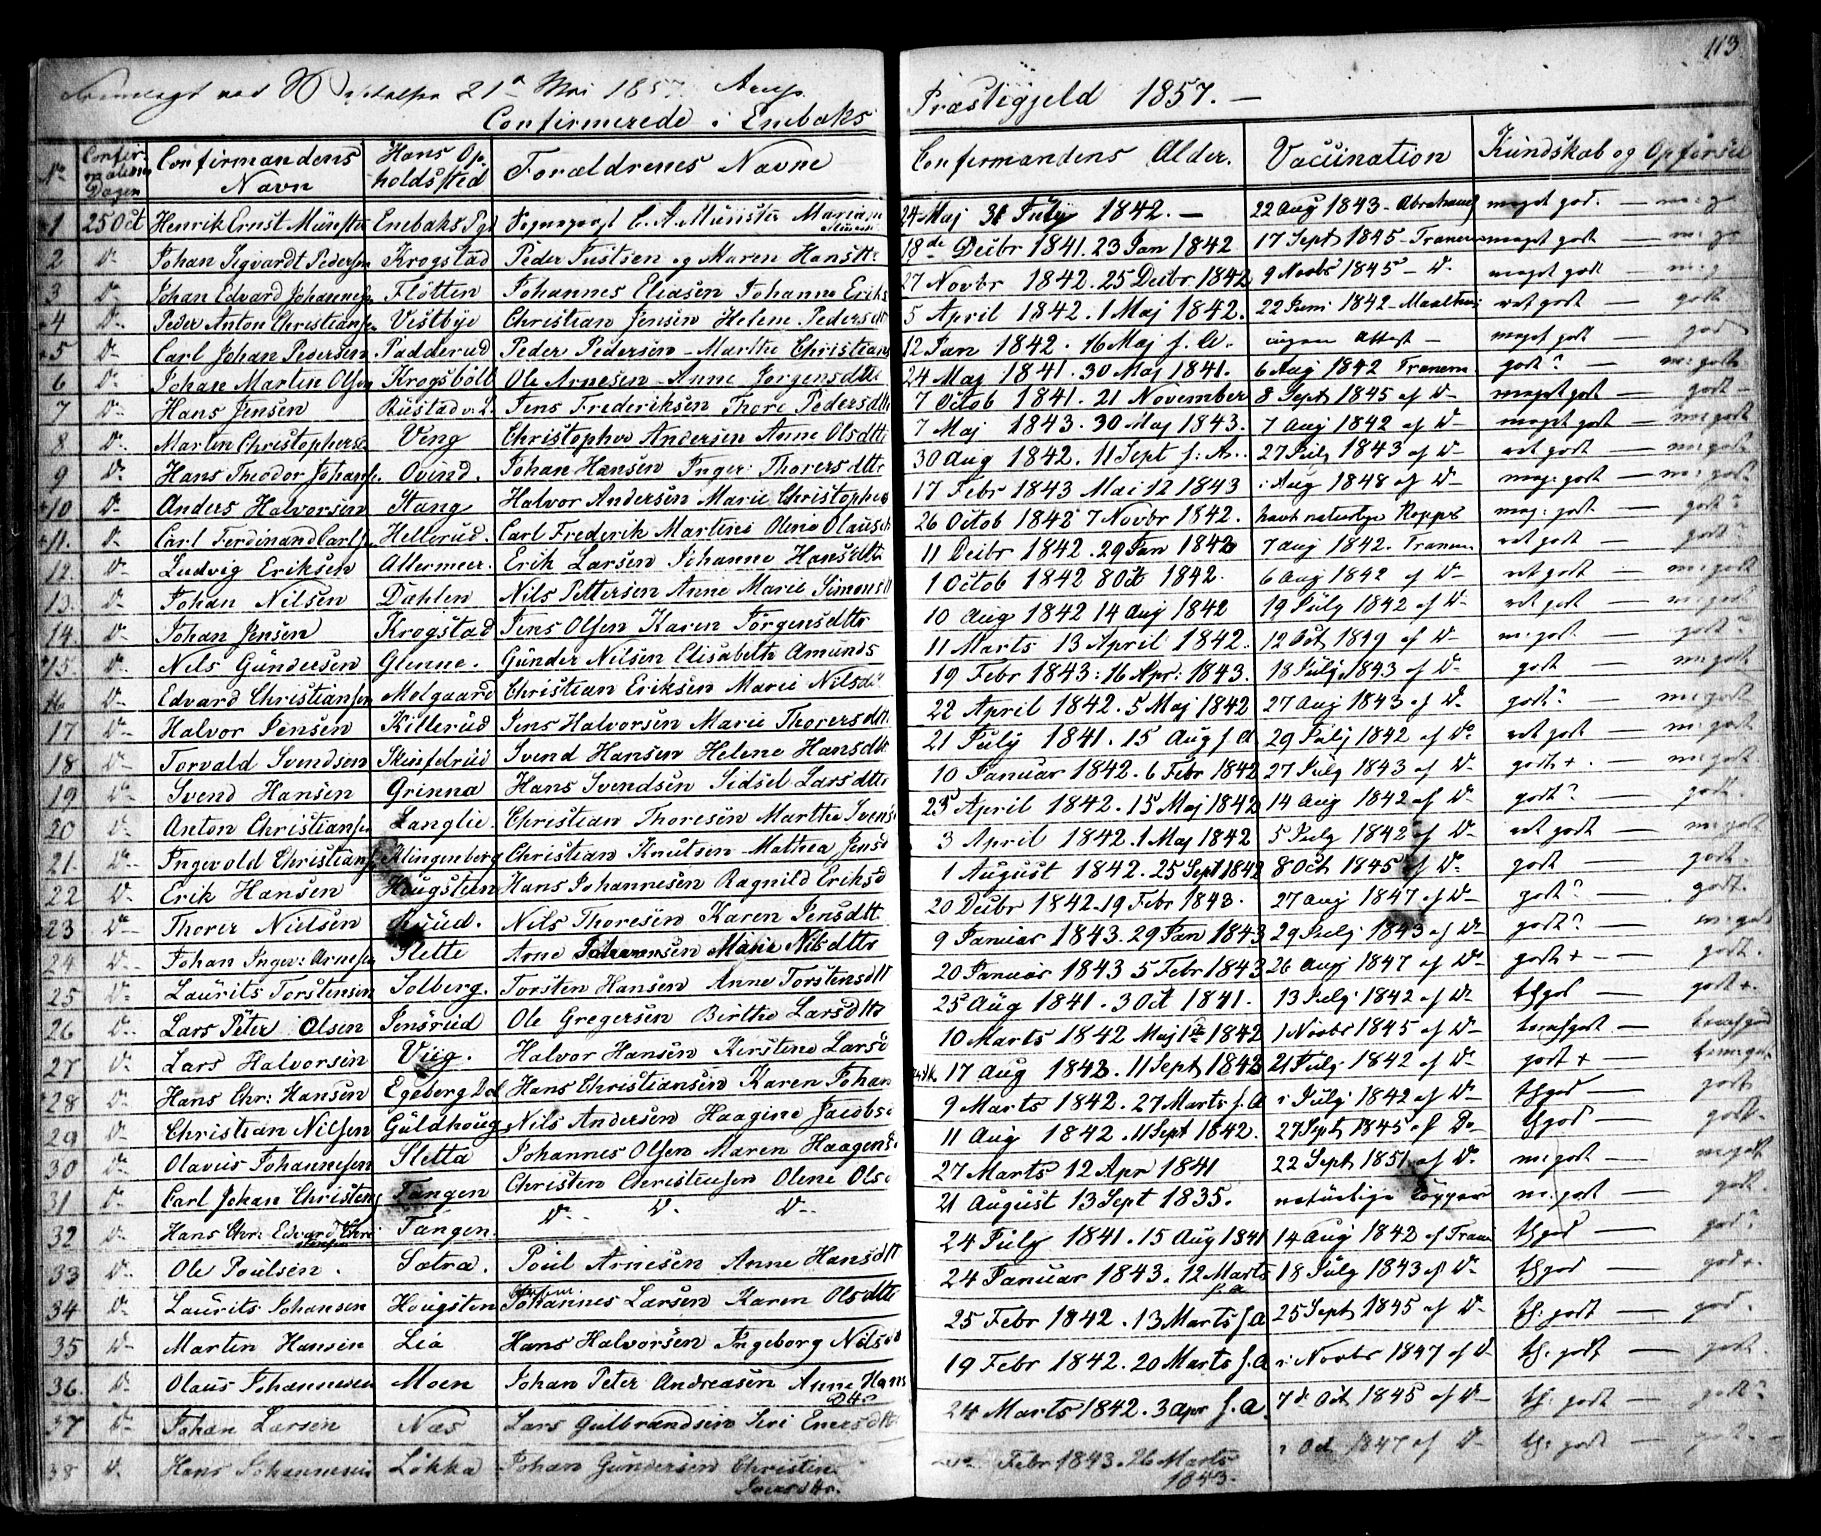 113
21de Mai 1857.
Confirmerede i Enebaks Præstegjeld 1857. —
No Confirmations Dagen Confirmandens Navn Hans Opholdsted Forældrenes Navne Confirmandens Alder. Vaccination Kundskab og Opførsel
1 25 Oct Henrik Ernst Münster Enebaks Pgd C. A. Münster Mariane 24 Maj 31 July 1842. — 22 Aug 1843 - meget god. — m: g
2 Do Johan Sigvardt Pedersen Krogstad Peder Justsen og Maren Hansdtr 18de Decbr 1841. 23 Jan 1842 17 Sept 1845 - meget godt —
3 Do Johan Edvard Johannesen Flötten Johannes Eliasen Johanne Eriks 27 Novbr 1842. 25 Decbr 1842 9 Novbr 1845 - Do meget godt —
4 Do Peder Anton Christiansen Vestbye Christian Jensen Helene Pedersdtt 5 April 1842. 1 Maj 1842. 22 Juni 1842 - vet godt — godt
5 Do Carl Johan Pedersen Padderud Peder Pedersen - Marthe Christians 12 Jan 1842. 16 Maj s. A. ingen Attest — meget godt — god
6 Do Johan Martin Olsen Krogsböll Ole Arnesen - Anne Jörgensdtt 24 Maj 1841. 30 Maj 1841. 6 Aug 1842 Tranem. godt? — m: godt
7 Do Hans Jensen Rustad v: L. Jens Frederiksen Thore Pedersdtt 7 Octob 1841. 21 November 8 Sept 1845 af Do meget godt — godt
8 Do Martin Christophersen Veng Christopher Andersen Anne Olsdtt 7 Maj 1843. 30 Maj 1843. 7 Aug 1842 af Do meget godt — m: godt
9 Do Hans Theodor Johansen Ovind. Johan Hansen Inger Thorersdtt 30 Aug 1842. 11 Sept s: A. 27 July 1843 af Do vet godt — m: godt
10 Do Anders Halvorsen Stang Halvor Andersen Marie Christophers 17 Febr 1843 Mai 12 1843 i Aug 1848 af Do meg: godt — m: godt
11. Do Carl Ferdinand Carlsen Hellerud. Carl Frederik Martini Olene Olausdt 26 Octob 1842 7 Novbr 1842. havt naturlige Kopper mag: godt — godt?
12. Do Ludvig Eriksen Allermeer. Erik Larsen Johanne Hansdtt 11 Decbr 1842. 29 Jan 1842 7 Aug 1842. Tranem. vet godt — godt?
13. Do Johan Nilsen Dahlen Nils Pettersen Anne Marie Simonsdt 1 Octob 1842 8 Oct 1842. 6 Aug 1842 af Do vet godt — m: godt
14. Do Johan Jensen Krogstad Jens Olsen Karen Jörgensdtt 10 Aug 1842 14 Aug 1842 19 July 1842 af Do vet godt — m: godt
15. Do Nils Gundersen Glenne. Gunder Nilsen Elisabeth Amunds 11 Marts 13 April 1842. 12 Oct 1849 af Do m: godt. — godt?
16 Do Edvard Christiansen Melgaard Christian Eriksen Marie Nilsdt 19 Febr 1843: 16 Apr: 1843. 18 July 1843 af Do godt — m: godt
17 Do Halvor Jensen Killerud Jens Halvorsen Marie Thorersdtt 22 April 1842. 5 Maj 1842 27 Aug 1843 af Do godt? — m: godt
18 Do Torvald Svendsen Skinfelrud Svend Hansen Helene Hansdtt 21 July 1841. 15 Aug s. A 29 July 1842 af Do vet godt — m: godt
19 Do Svend Hansen Grinna Hans Svendsen Sidsel Larsdtt 10 Januar 1842. 6 Febr 1842 27 July 1843 af Do godt + . — m: godt
20 Do Anton Christiansen Langlie. Christian Thoresen Marthe Svens 25 April 1842. 15 Maj 1842 14 Aug 1842 af Do godt? — godt.
21. Do Ingevold Christiansen Klingenberg Christian Knutsen - Mathea Jensd 3 April 1842. 1 Maj 1842 5 July 1842 af Do vet godt — m: godt
22 Do Erik Hansen Hougsteen Hans Johannesen Ragnild Eriksd 1 August 1842. 25 Sept 1842 8 Oct 1845 af Do. godt — godt.
23 Do Thorer Nielsen Ruud. Nils Thoresen Karen Jensdtt 20 Decbr 1842. 19 Febr 1843. 27 Aug 1847 af Do godt? — godt.
24 Do Johan Inger: Arnesen Slette Arne Johannsen Marie Nilsdtt 9 Januar 1843. 29 Jan 1843 29 July 1843 af Do godt? — m: godt
25 Do Laurits Torstensen Solberg. Torsten Hansen Anne Torstensdtt 20 Januar 1843 5 Febr 1843 26 Aug 1847 af Do godt + — godt.
26 Do Lars Peter Olsen Jensrud Ole Gregersen Birthe Larsdtt 25 Aug 1841. 3 Oct 1841. 13 July 1842 af Do tgod — godt +.
27 Do Lars Halvorsen Viig. Halvor Hansen Kerstine Larsd 10 Marts 1842 Maj 1ste 1842 1 Novbr 1845 af Do
28 Do Hans Chr: Hansen Egeberg Hans Christiansen Karen Johan 17 Aug 1842. 11 Sept 1842 21 July 1842 af Do godt +
29 Do Christian Nilsen Guldhoug Nils Andersen Haagine Jacobs 9 Marts 1842. 27 Marts s. A i July 1842 af Do tgod — godt
30 Do Olavus Johannesen Sletta Johannes Olsen Maren Haagens 11 Aug 1842. 11 Sept 1842. 27 Sept 1845 af Do tgod — godt
31 Do Carl Johan Christens Tangen Christen Christensen Olene Ols 27 Marts 12 Apr 1841 22 Sept 1851 af Do m: godt — m: godt
32 Do Hans Chr: Edvard Christensen Tangen. Do Do Do 21 August 13 Sept 1835. naturlige Kopper m: godt — godt
33 Do Ole Poulsen. Sætra. Poul Arnesen Anne Hansdtt 24 July 1841. 15 Aug 1841 14 Aug 1842 af Tran tgod — god?
34 Do Laurits Johansen Hougsten Johannes Larsen Karen Olsdtt 24 Januar 1843. 12 Marts s. a 18 July 1843 af Do tgod — god +.
35 Do Martin Hansen Lia Hans Halvorsen Ingeborg Nilsdt 25 Febr 1842. 13 Marts s. A 25 Sept 1845 af Do t: godt — god.
36. Do Olaus Johannesen Moen Johan Peter Andreasen Anne Hans Dtr 19 Febr 1842. 20 Marts s. A i Novbr 1847 af Do t: godt — godt.
37 Do Johan Larsen Næs Lars Gulbrandsen Siri Enersdtt 24 Marts 1842. 3 Apr s. A. 7de Oct 1845 af Do t: godt — godt?
38 Do Hans Johannesen Lökka Johan Gundersen Christine Febr 1843. 26 Marts 1843. i Oct 1847 af Do t: godt — godt